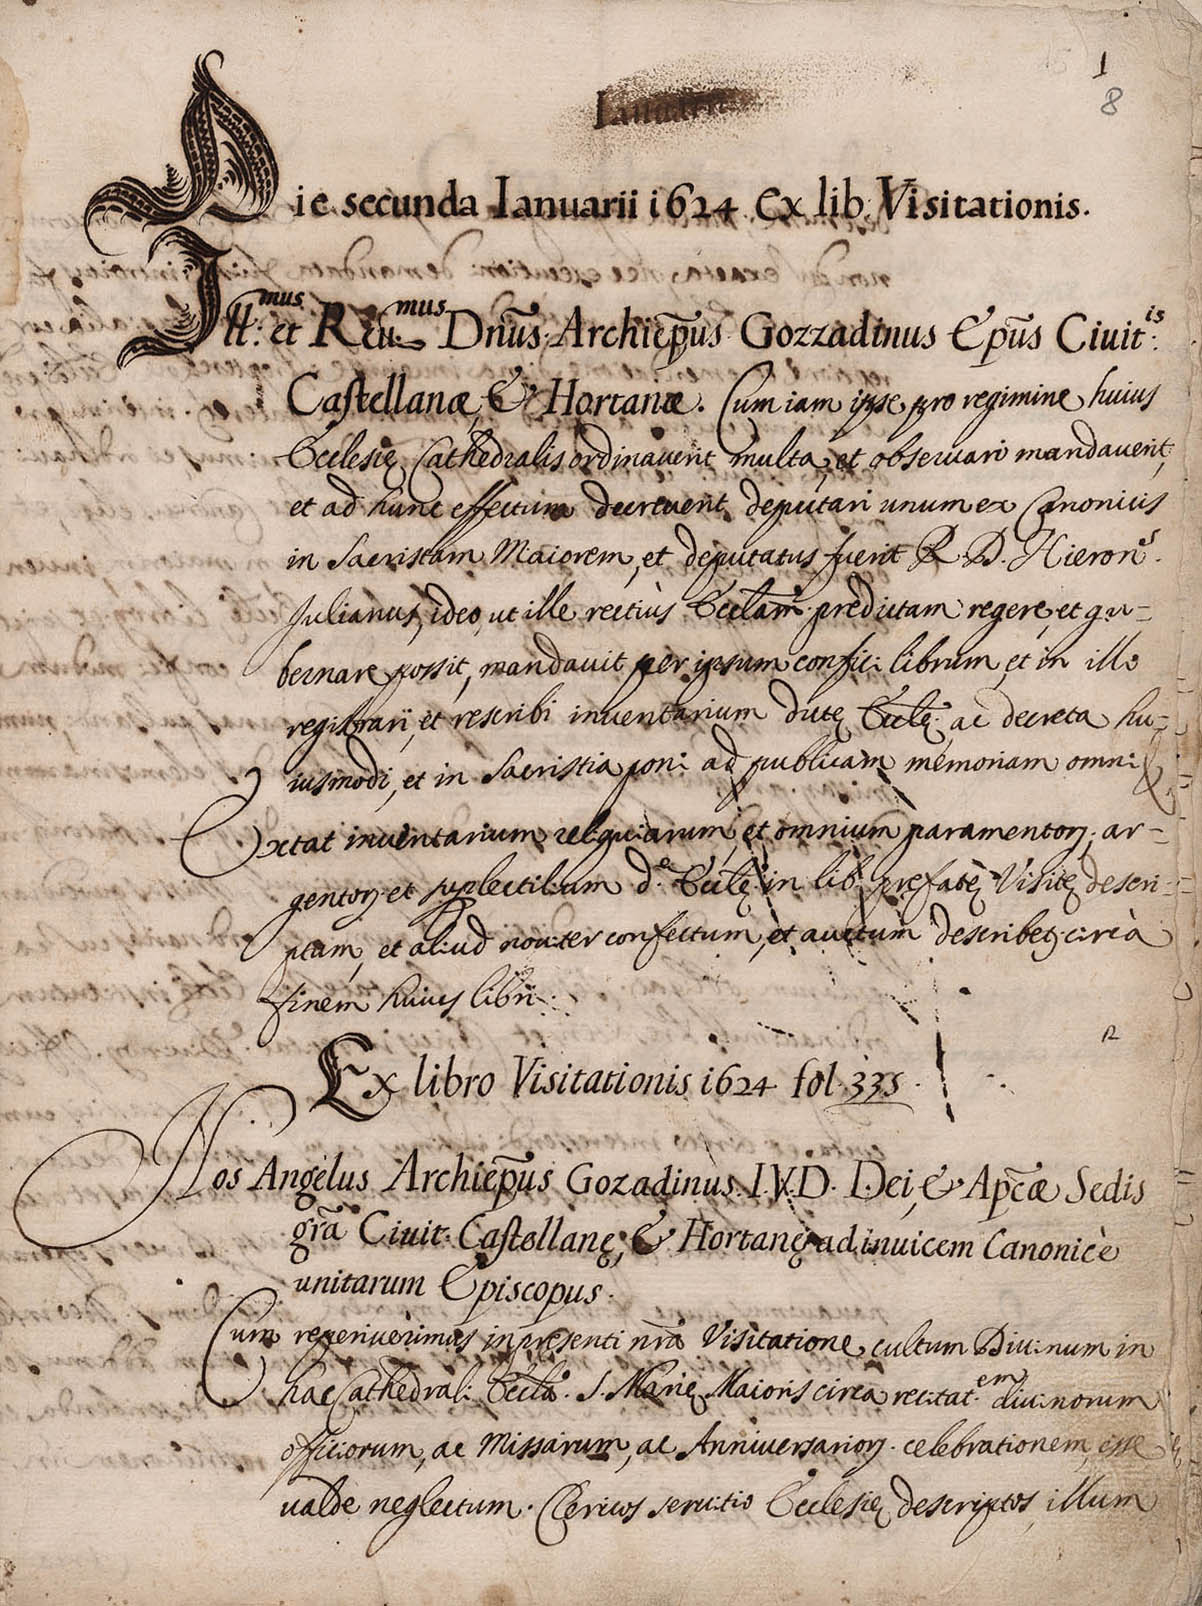 1
8
Ianuarii
Die secunda Ianuarii 1624 Ex lib. Visitationis.
Ill:mus et Reu:mus Dnūs Archiep̄us Gozzadinus Ep̄us Ciuit:is
Castellanæ, & Hortanæ. Cum iam ipse pro regimine huius
Ecclesię Cathedralis ordinaverit multa, et obseruari mandauerit,
et ad hunc effectum decreuerit deputari unum ex Canonicis
in Sacristam Maiorem, et deputatus fuerit R. D. Hieron.s
Julianus, ideo, ut ille rectiùs Eccl̄am predictam regere, et gu-
bernare possit, mandauit per ipsum confici librum, et in illo
registrarij, et rescribi inventarium dictę Eccl̄ę ac decreta hu-
iusmodi, et in Sacristia poni ad publicam memoriam omni
Extat inuentarium reliquiarum, et omnium paramentorꝫ, ar-
gentorꝫ et suplectilium d.e Eccl̄ę in lib. prefatę Visitę descri-
ptum, et aliud nouiter confectum, et auctum describetꝫ circà
finem huius libri.
12
Ex libro Visitationis 1624 fol. 335.
Nos Angelus Archiep̄us Gozadinus I.V.D. Dei, & Ap̄cæ Sedis
gr̄a Ciuit. Castellanę, & Hortanę ad inuicem Canonicè
unitarum Episcopus.
Cum reperiuerimus in presenti nr̄a Visitatione cultum Diuinum in
hac Cathedrali Eccl̄a. S. Marię Maioris circa recitat.em diuinorum
officiorum, ac Missarum, ac Anniuersariorꝫ. celebrationem, esse
ualde neglectum. Clericos seruitio Ecclesię descriptos, illum